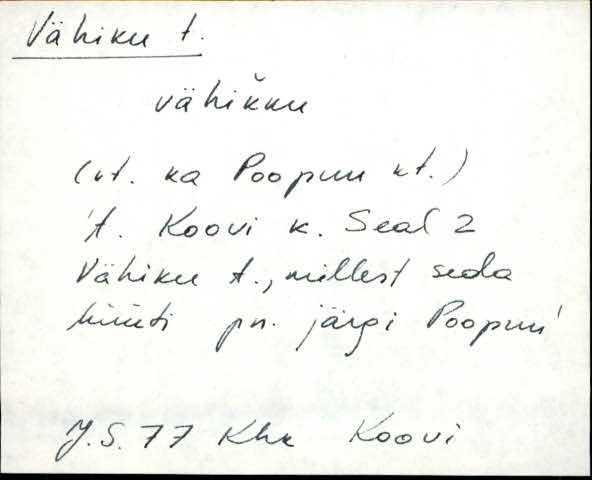 Vähiku t.
vähik̆ku
(vt. ka Poopuu kt.)
't. Koovi k. Seal 2
Vähiku t., millest seda
hüüti pn. järgi Poopuu'
J.S. 77 Khk Koovi